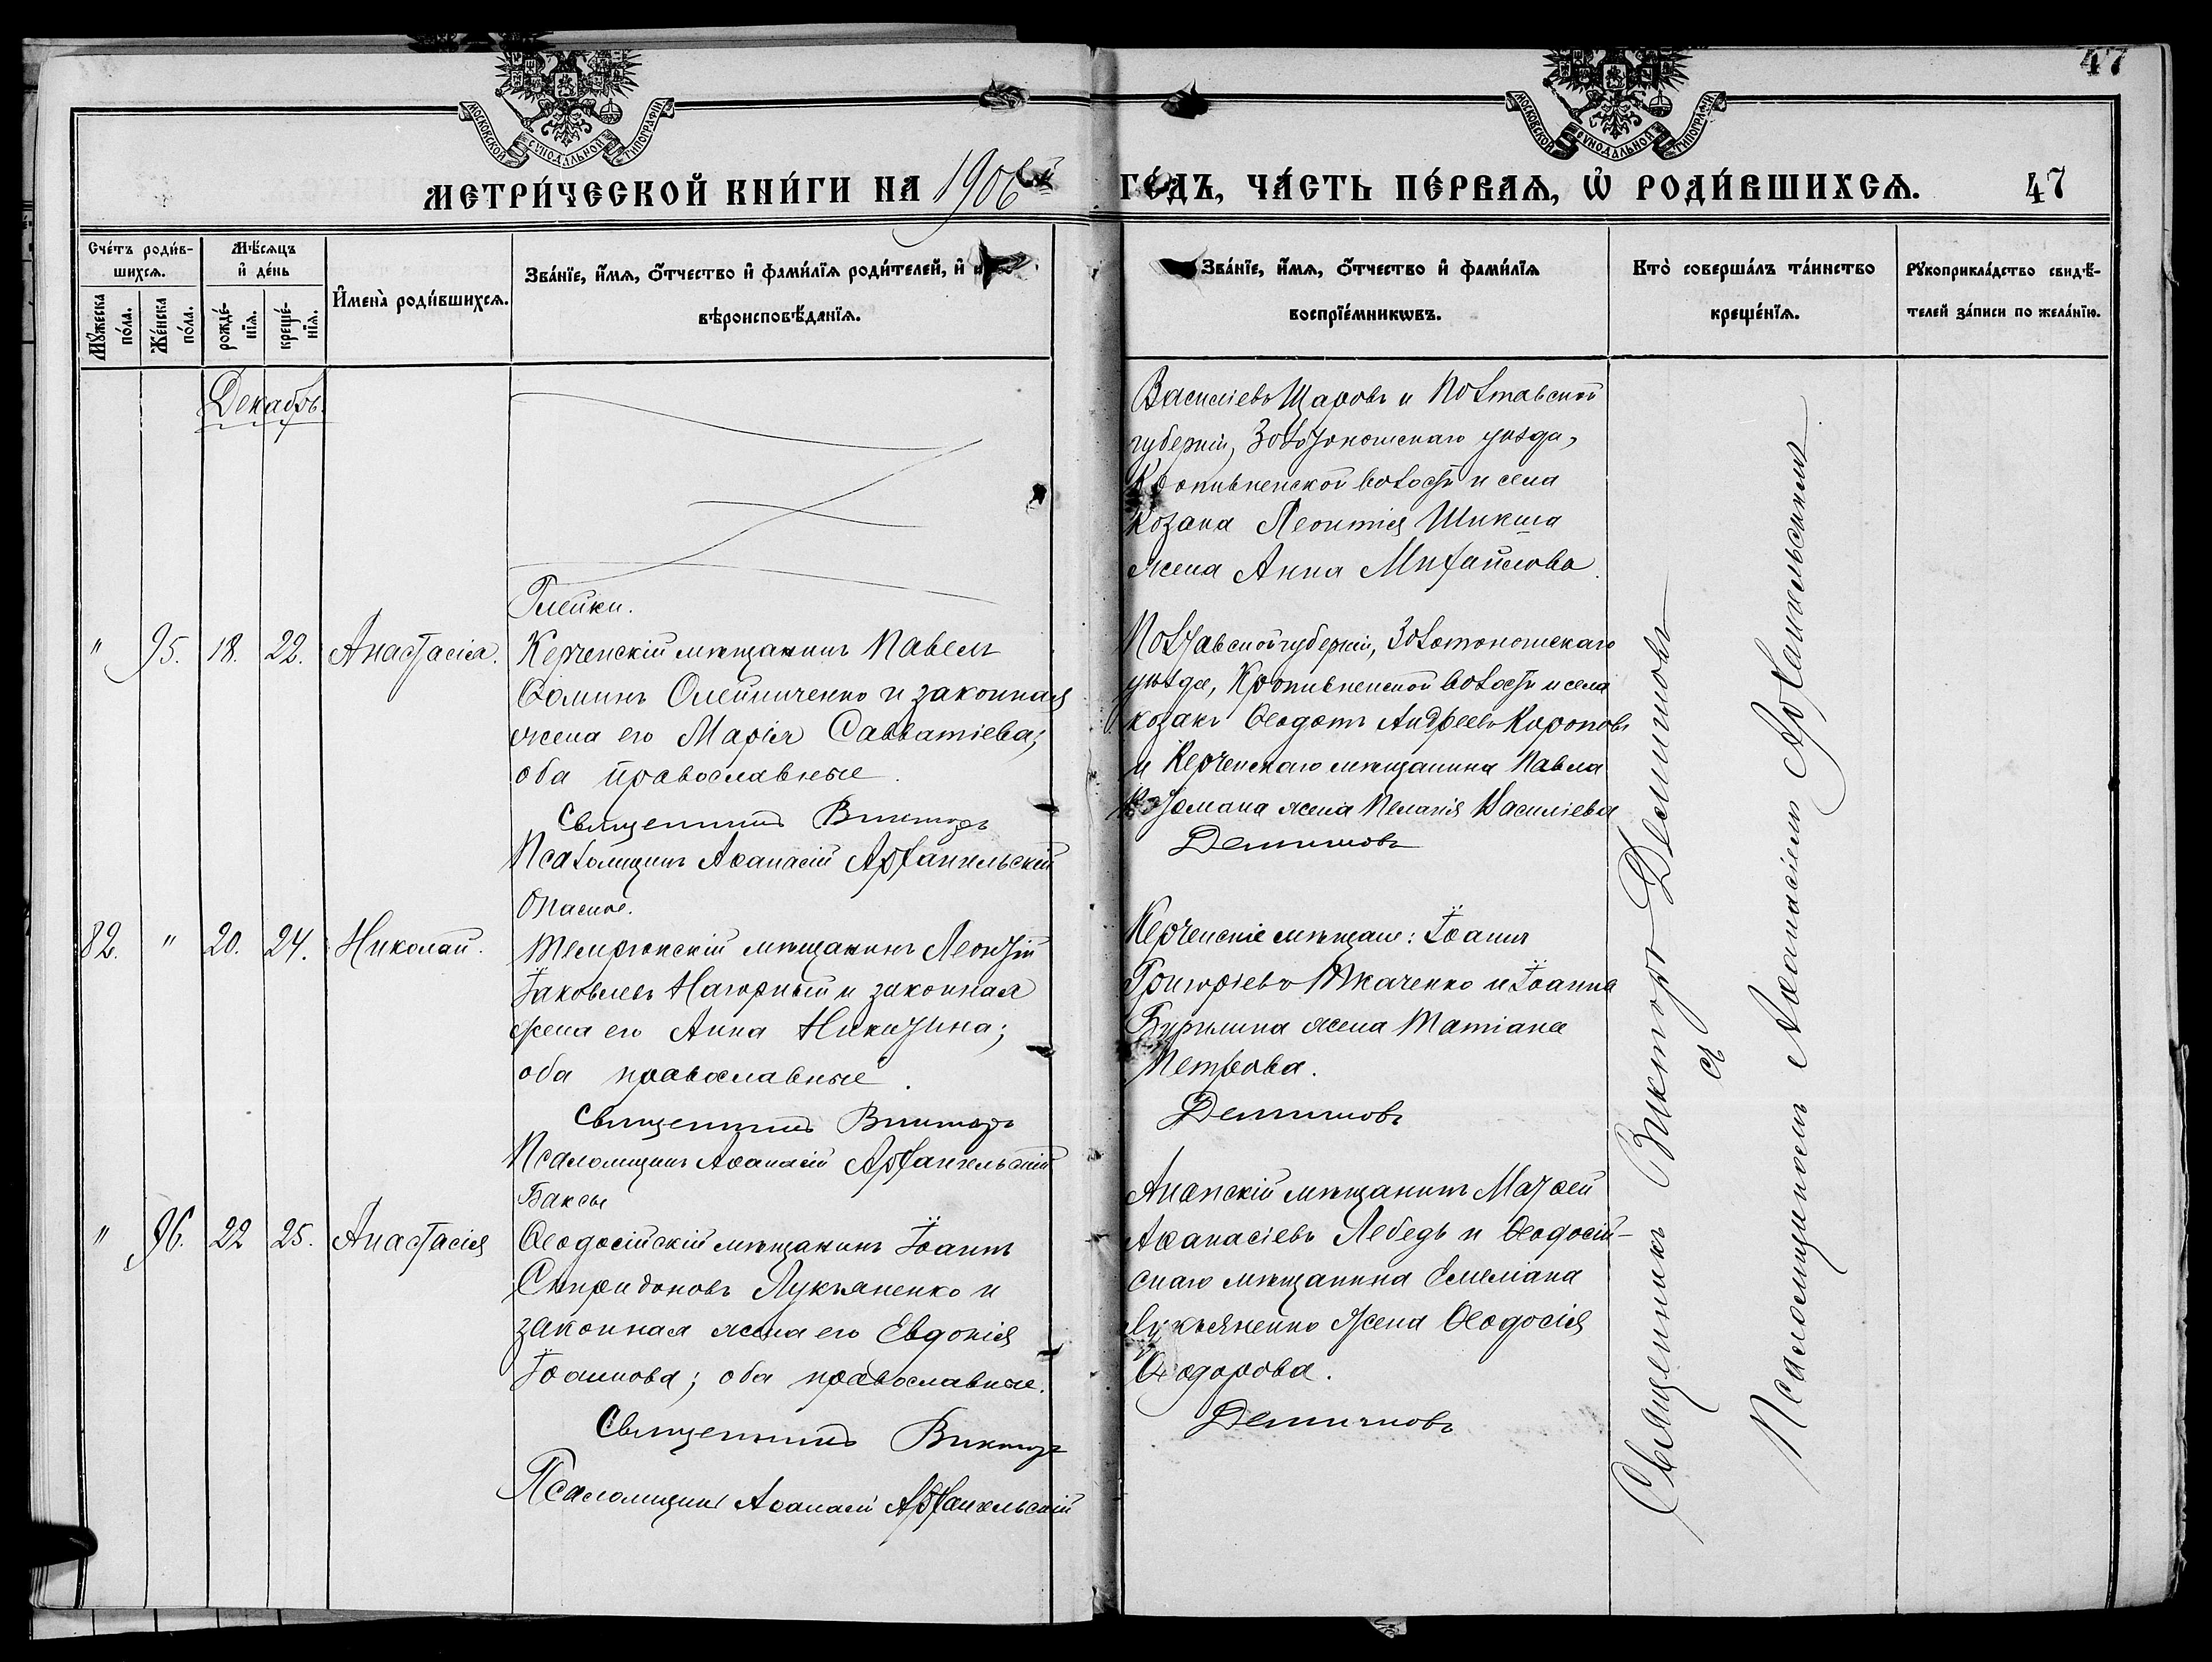 47
МОСКОВСКОЙ СѴНОДАЛЬНОЙ ТИПОГРАФІИ
МОСКОВСКОЙ СѴНОДАЛЬНОЙ ТИПОГРАФІИ
МЕТРИ́ЧЕСКОЙ КНИ́ГИ НА 1906ой ГО́ДЪ, ЧА́СТЬ ПЕ́РВАЯ, Ѡ҆ РОДИ́ВШИХСЯ. 47
Сче́тъ роди́в-
шихся.
Мꙋ́жеска по́ла.
Же́нска по́ла.
Мѣ́сяцъ
и҆ де́нь
рожде́-
нїя.
креще́-
нїя.
И҆мена̀ роди́вшихся.
Зва́нїе, и҆́мя, ѻ҆́тчество и҆ фами́лїя роди́телей, и҆
вѣроисповѣ́данїя.
Зва́нїе, и҆́мя, ѻ҆́тчество и҆ фами́лїя
воспрїе́мникѡвъ.
Кто̀ соверша́лъ та́инство
креще́нїя.
Рꙋкоприкла́дство свидѣ́-
телей за́писи по жела́нїю.
Декабрь.
Василіевъ Щаровъ и Полтавской
губерніи, Золотоношскаго уѣзда,
Кропивненской волости и села
козака Леонтія Шикша
жена Анна Михайлова.
Глейки.
" 95. 18. 22. Анастасія.
Керченскій мѣщанинъ Павелъ
Ѳоминъ Олейниченко и законная
жена его Марія Савватіева;
оба православные.
Священникъ Викторъ
Псаломщикъ Аѳанасій Архангельскій
Полтавской губерніи, Золотоношскаго
уѣзда, Кропивненской волости и села
козакъ Ѳеодотъ Андреевъ Короповъ
и Керченскаго мѣщанина Павла
жена Пелагія Василіева
Демишовъ
Опасное.
82. " 20. 24. Николай.
Темрюкскій мѣщанинъ Леонтій
Іаковлевъ Нагорный и законная
жена его Анна Никитина;
оба православные.
Священникъ Викторъ
Псаломщикъ Аѳанасій Архангельскій
Керченскіе мѣщане: Іоаннъ
Григоріевъ Ткаченко и Іоанна
Бурилина жена Татіана
Петрова.
Демишовъ
Баксы
" 96. 22 25. Анастасія
Ѳеодосійскій мѣщанинъ Іоаннъ
Спиридоновъ Лукьяненко и
законная жена его Евдокія
Іоаннова; оба православные.
Священникъ Викторъ
Псаломщикъ Аѳанасій Архангельскій
Анапскій мѣщанинъ Матѳей
Аѳанасіевъ Лебедь и Ѳеодосій-
скаго мѣщанина Емеліана
Лукьяненко жена Ѳеодосія
Ѳеодорова.
Демишовъ
Священникъ Викторъ Демишовъ
съ
Псаломщикомъ Аѳанасіемъ Архангельскимъ